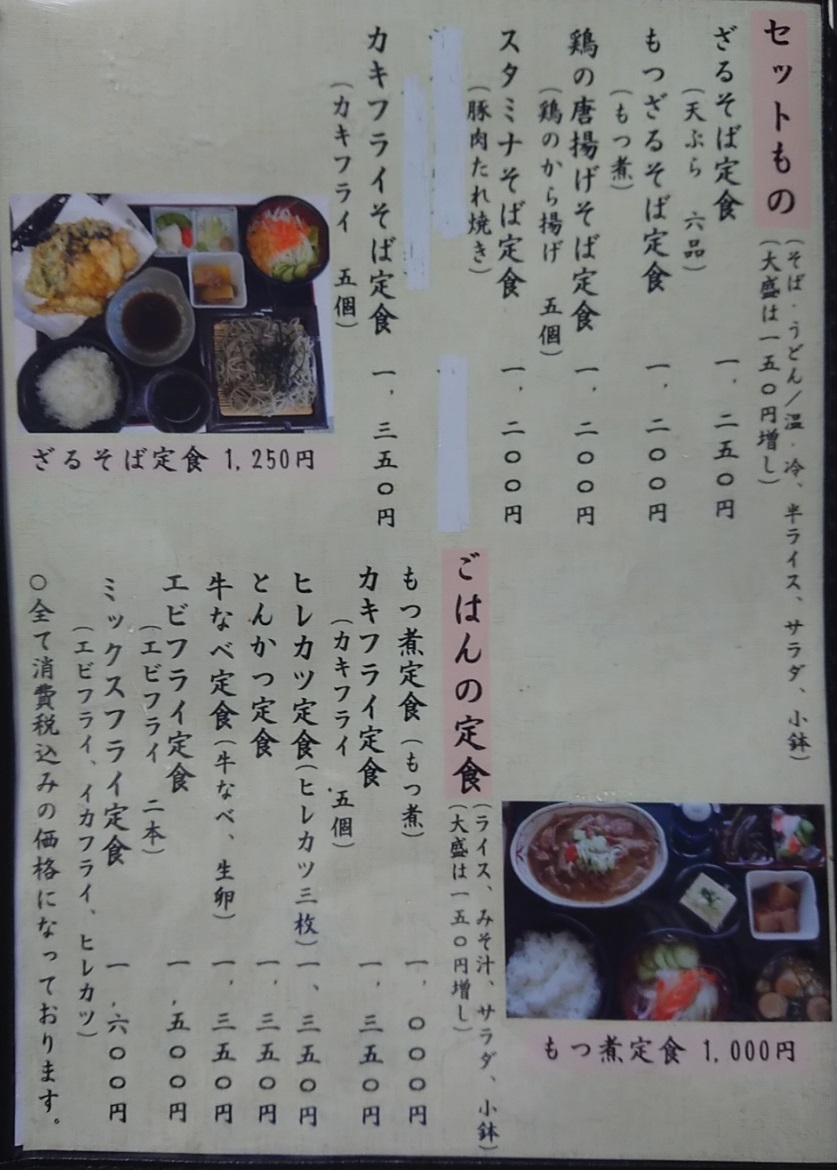 セットもの
(そば・うどん／温・冷、半ライス、サラダ、小鉢)
(大盛は一五〇円増し)
ざるそば定食 一，二五〇円
(天ぷら 六品)
もつざるそば定食 一，二〇〇円
(もつ煮)
鶏の唐揚げそば定食 一，二〇〇円
(鶏のから揚げ 五個)
スタミナそば定食 一，二〇〇円
(豚肉たれ焼き)
カキフライそば定食 一，三五〇円
(カキフライ 五個)
ざるそば定食 1,250円
ごはんの定食
(ライス、みそ汁、サラダ、小鉢)
(大盛は一五〇円増し)
もつ煮定食(もつ煮) 一，〇〇〇円
カキフライ定食 一，三五〇円
(カキフライ 五個)
ヒレカツ定食(ヒレカツ三枚) 一、三五〇円
とんかつ定食 一，三五〇円
牛なべ定食(牛なべ、生卵) 一，三五〇円
エビフライ定食 一，五〇〇円
(エビフライ 二本)
ミックスフライ定食 一，六〇〇円
(エビフライ、イカフライ、ヒレカツ)
〇全て消費税込みの価格になっております。
もつ煮定食 1,000円